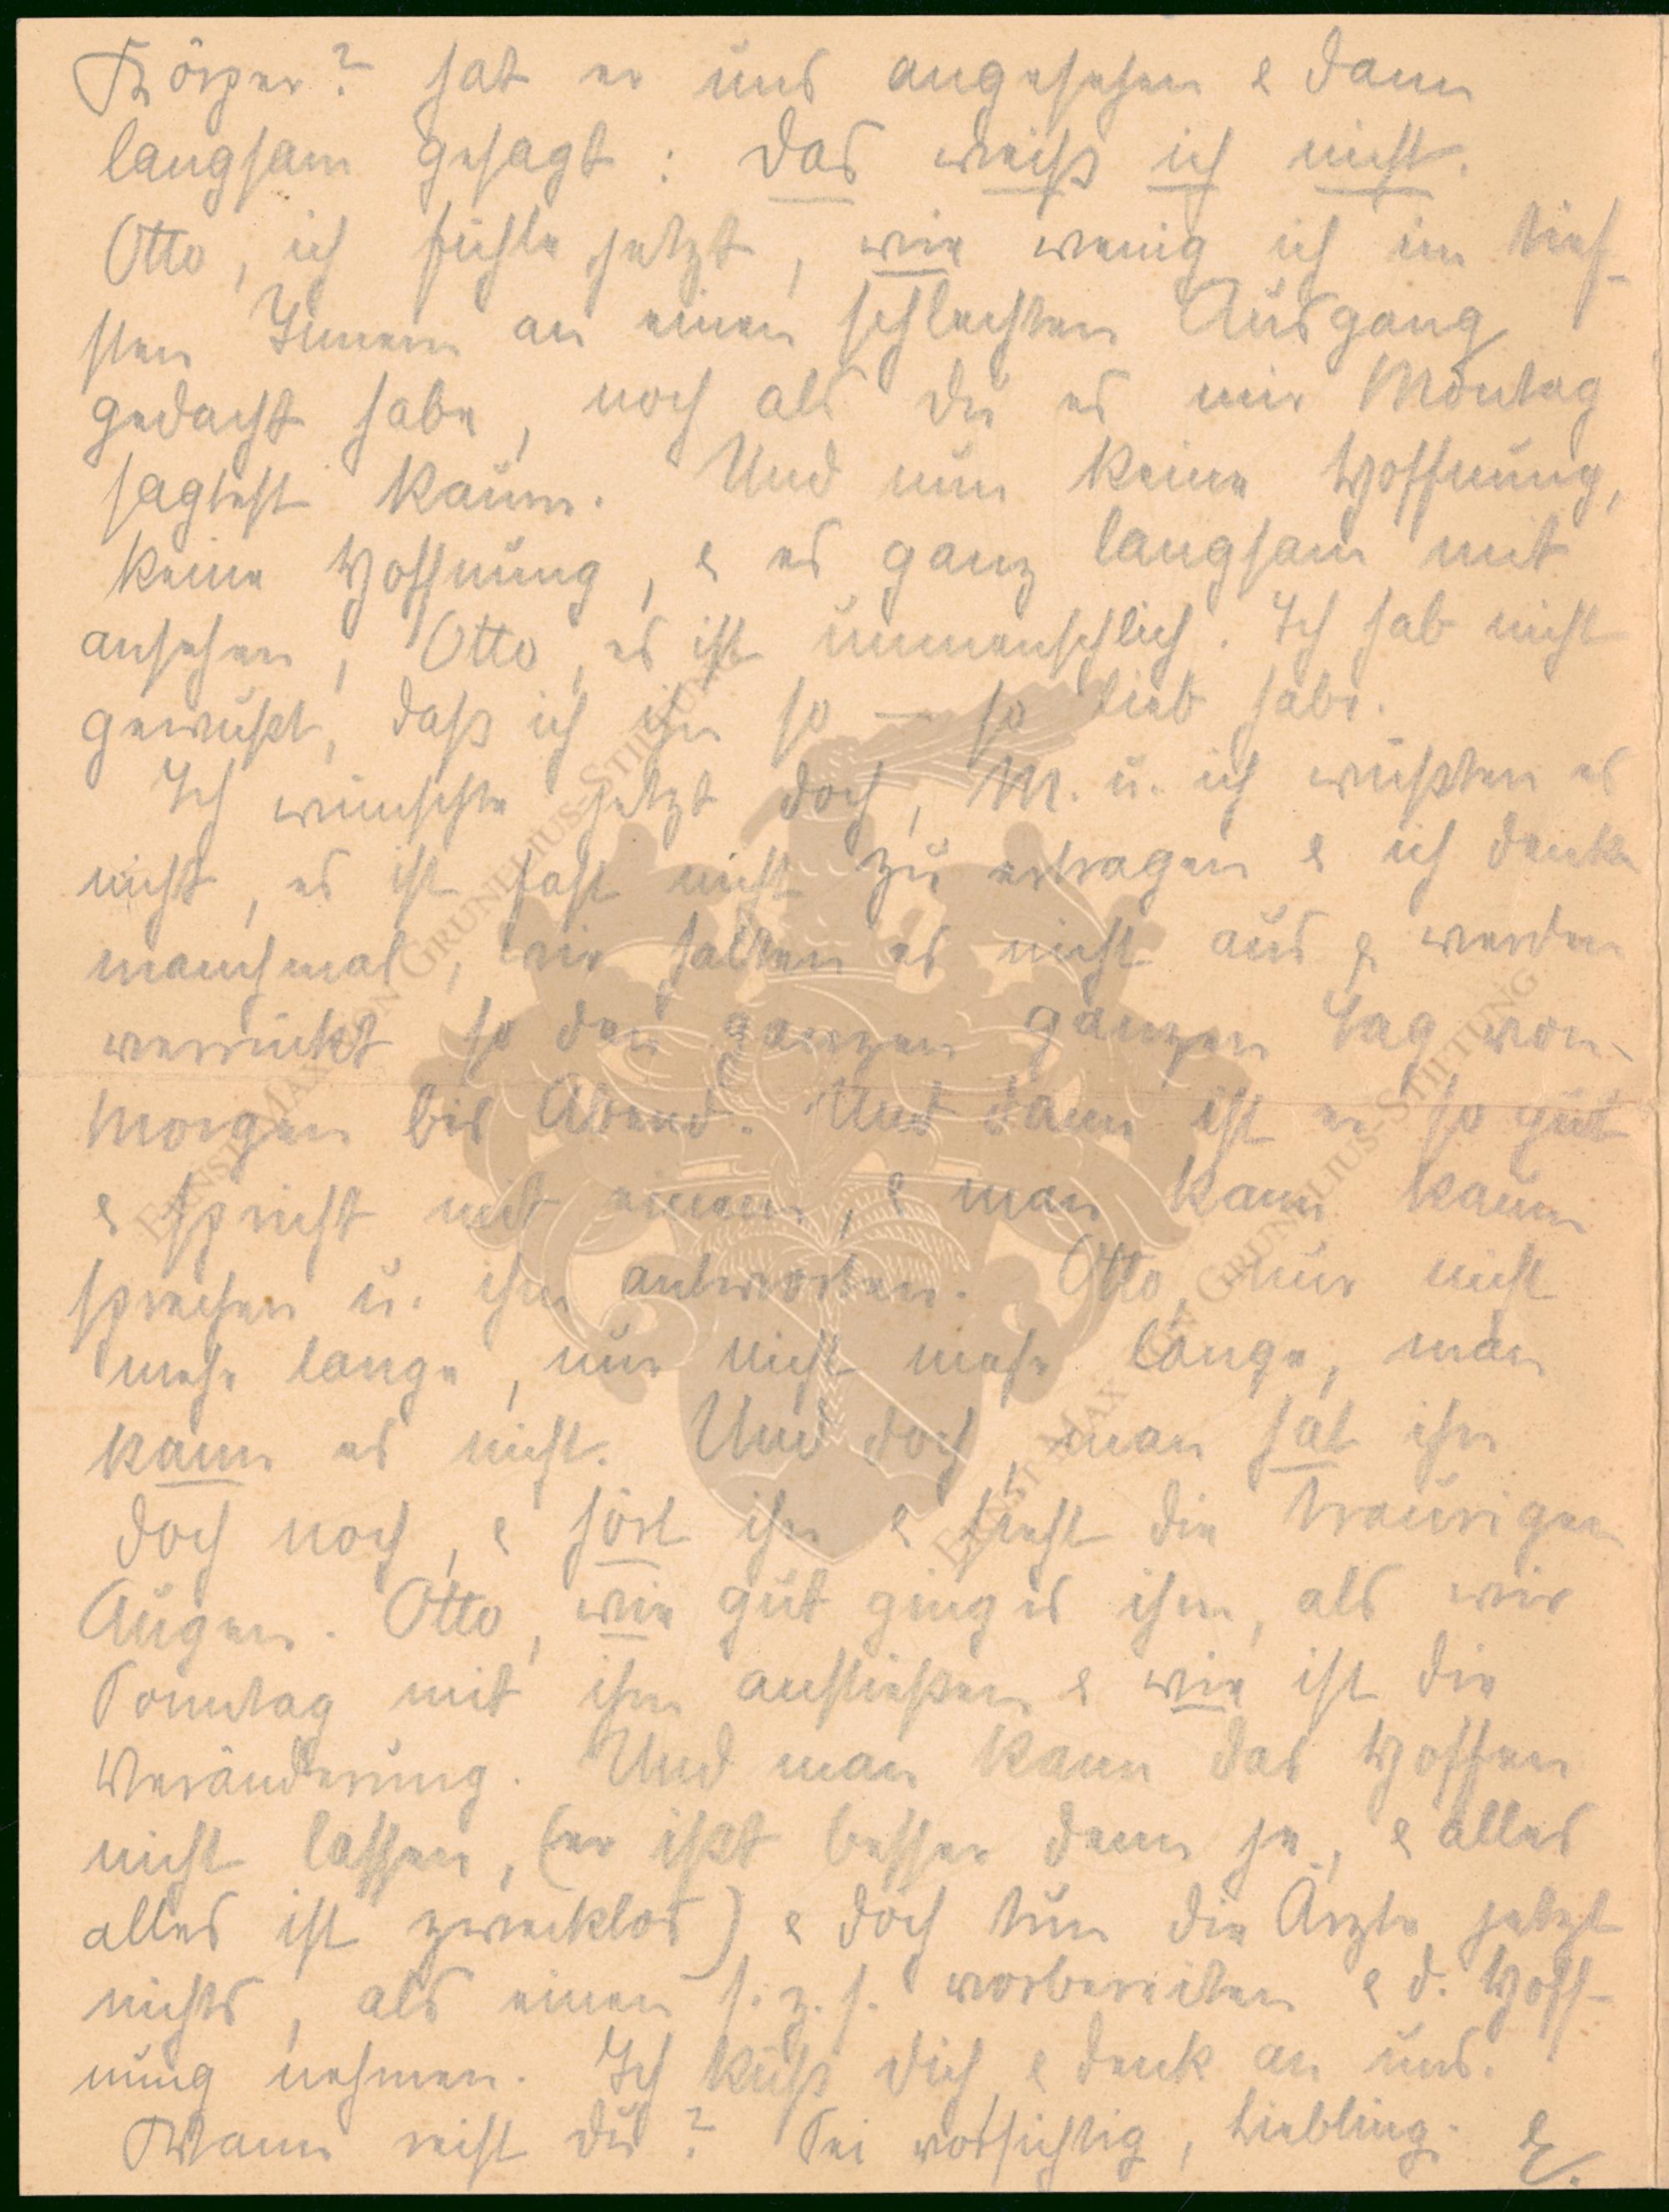 Körper? hat er uns angesehen & dann
langsam gesagt: das weiß ich nicht.
Otto, ich fühle jetzt, wie wenig ich im tief-
sten Innern an einen schlechten Ausgang
gedacht habe, noch als Du es mir Montag
sagtest kaum. Und nun keine Hoffnung,
keine Hoffnung, & es ganz langsam mit
ansehen, Otto, es ist unmenschlich. Ich hab nicht
gewußt, daß ich ihn so — so lieb habe.
Ich wünschte jetzt doch, M. u. ich wüßten es
nicht, es ist fast nicht zu ertragen & ich denke
manchmal, wir halten es nicht aus & werden
verrückt so den ganzen ganzen Tag von
Morgen bis Abend. Und dann ist er so gut
& spricht mit einem, & man kann kaum
sprechen u. ihm antworten. Otto, nur nicht
mehr lange, nur nicht mehr lange, man
kann es nicht. Und doch, man hat ihn
doch noch, & hört ihn & sieht die traurigen
Augen. Otto, wie gut ging es ihm, als wir
Sonntag mit ihm anstießen & wie ist die
Veränderung. Und man kann das Hoffen
nicht lassen, (er ißt besser denn je, & alles
alles ist zwecklos) & doch tun die Ärzte jetzt
nichts, als einen s. z. s. vorbereiten & d. Hoff-
nung nehmen. Ich küß Dich & denk an uns.
Wann reist Du? Sei vorsichtig, Liebling. E.
ERNST MAX VON GRUNELIUS-STIFTUNG
ERNST MAX VON GRUNELIUS-STIFTUNG